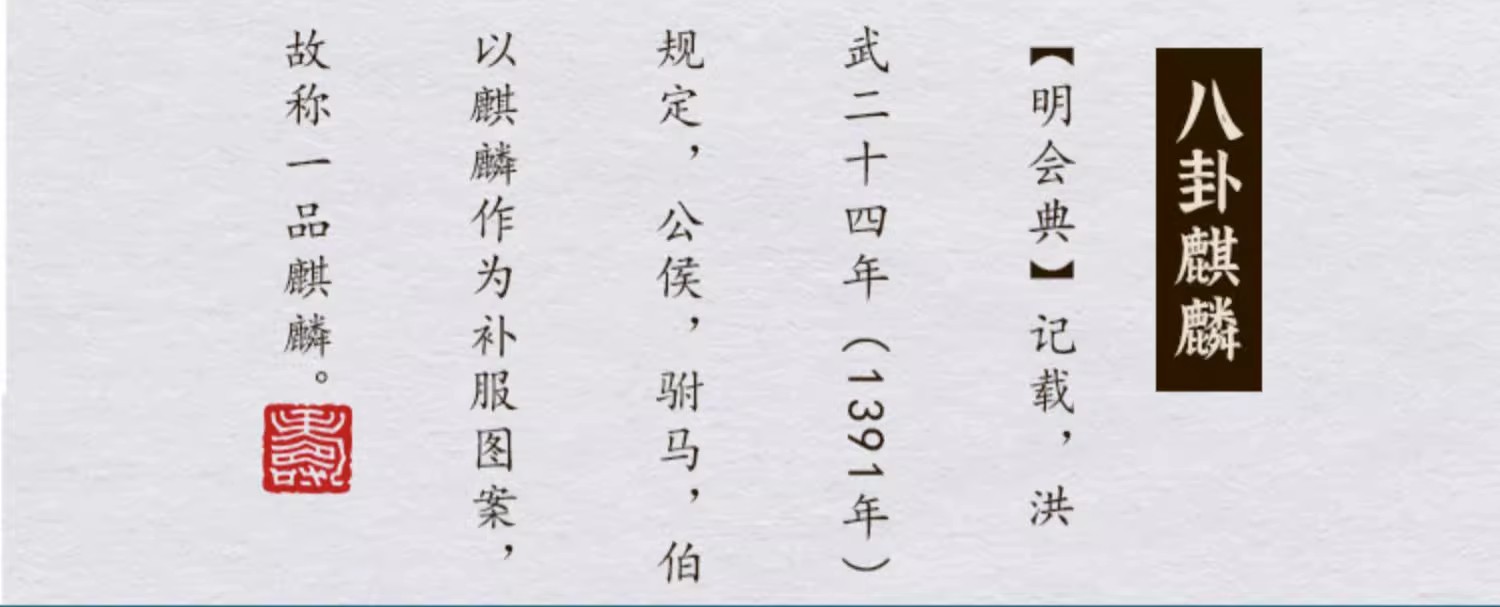 八卦麒麟
【明会典】记载，洪
武二十四年（1391年）
规定，公侯，驸马，伯
以麒麟作为补服图案，
故称一品麒麟。
壽